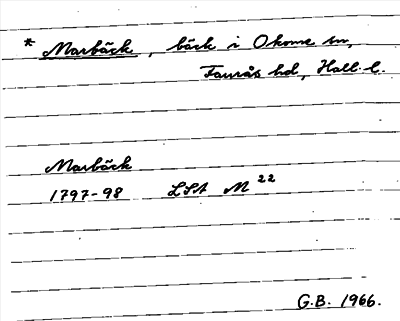 * Marbäck, bäck i Okome sn,
Faurås hd, Hall. l.
Marbäck
1797-98 LSA M 22
G.B. 1966.